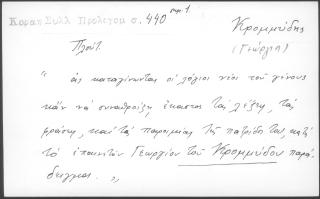 Κοραη Συλλ Προλεγομ σ. 440 σημ. 1.
Κρομμύδης
(Γεώργιος)
Πλούτ.
" ἄς καταγίνωνται οἱ λόγιοι νέοι τοῦ γένους
κἄν νά συναθροίζῃ ἕκαστος τάς λέξεις, τάς
φράσεις, καί τάς παροιμίας τῆς πατρίδος του, κατά
τό ἐπαινετόν Γεωργίου τοῦ Κρομμύδου παρά-
δειγμα. "